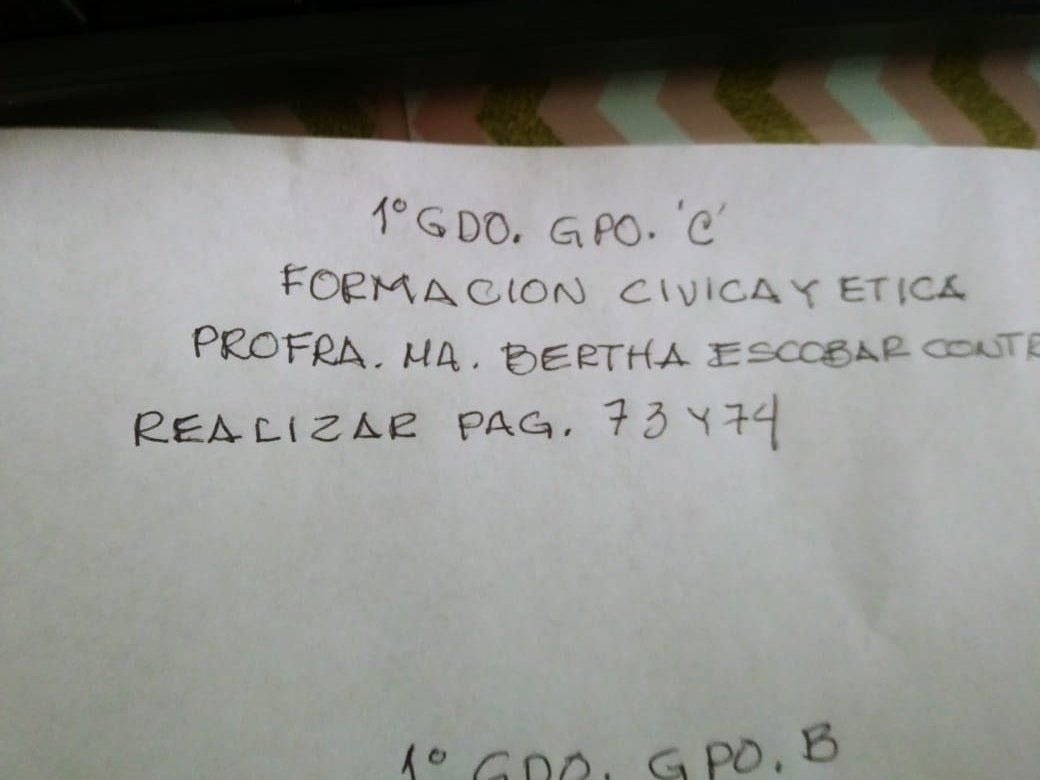 1º GDO. GPO. 'C'
FORMACION CIVICA Y ETICA
PROFRA. MA. BERTHA ESCOBAR CONTR
REALIZAR PAG. 73 Y 74
1º GDO. GPO. B